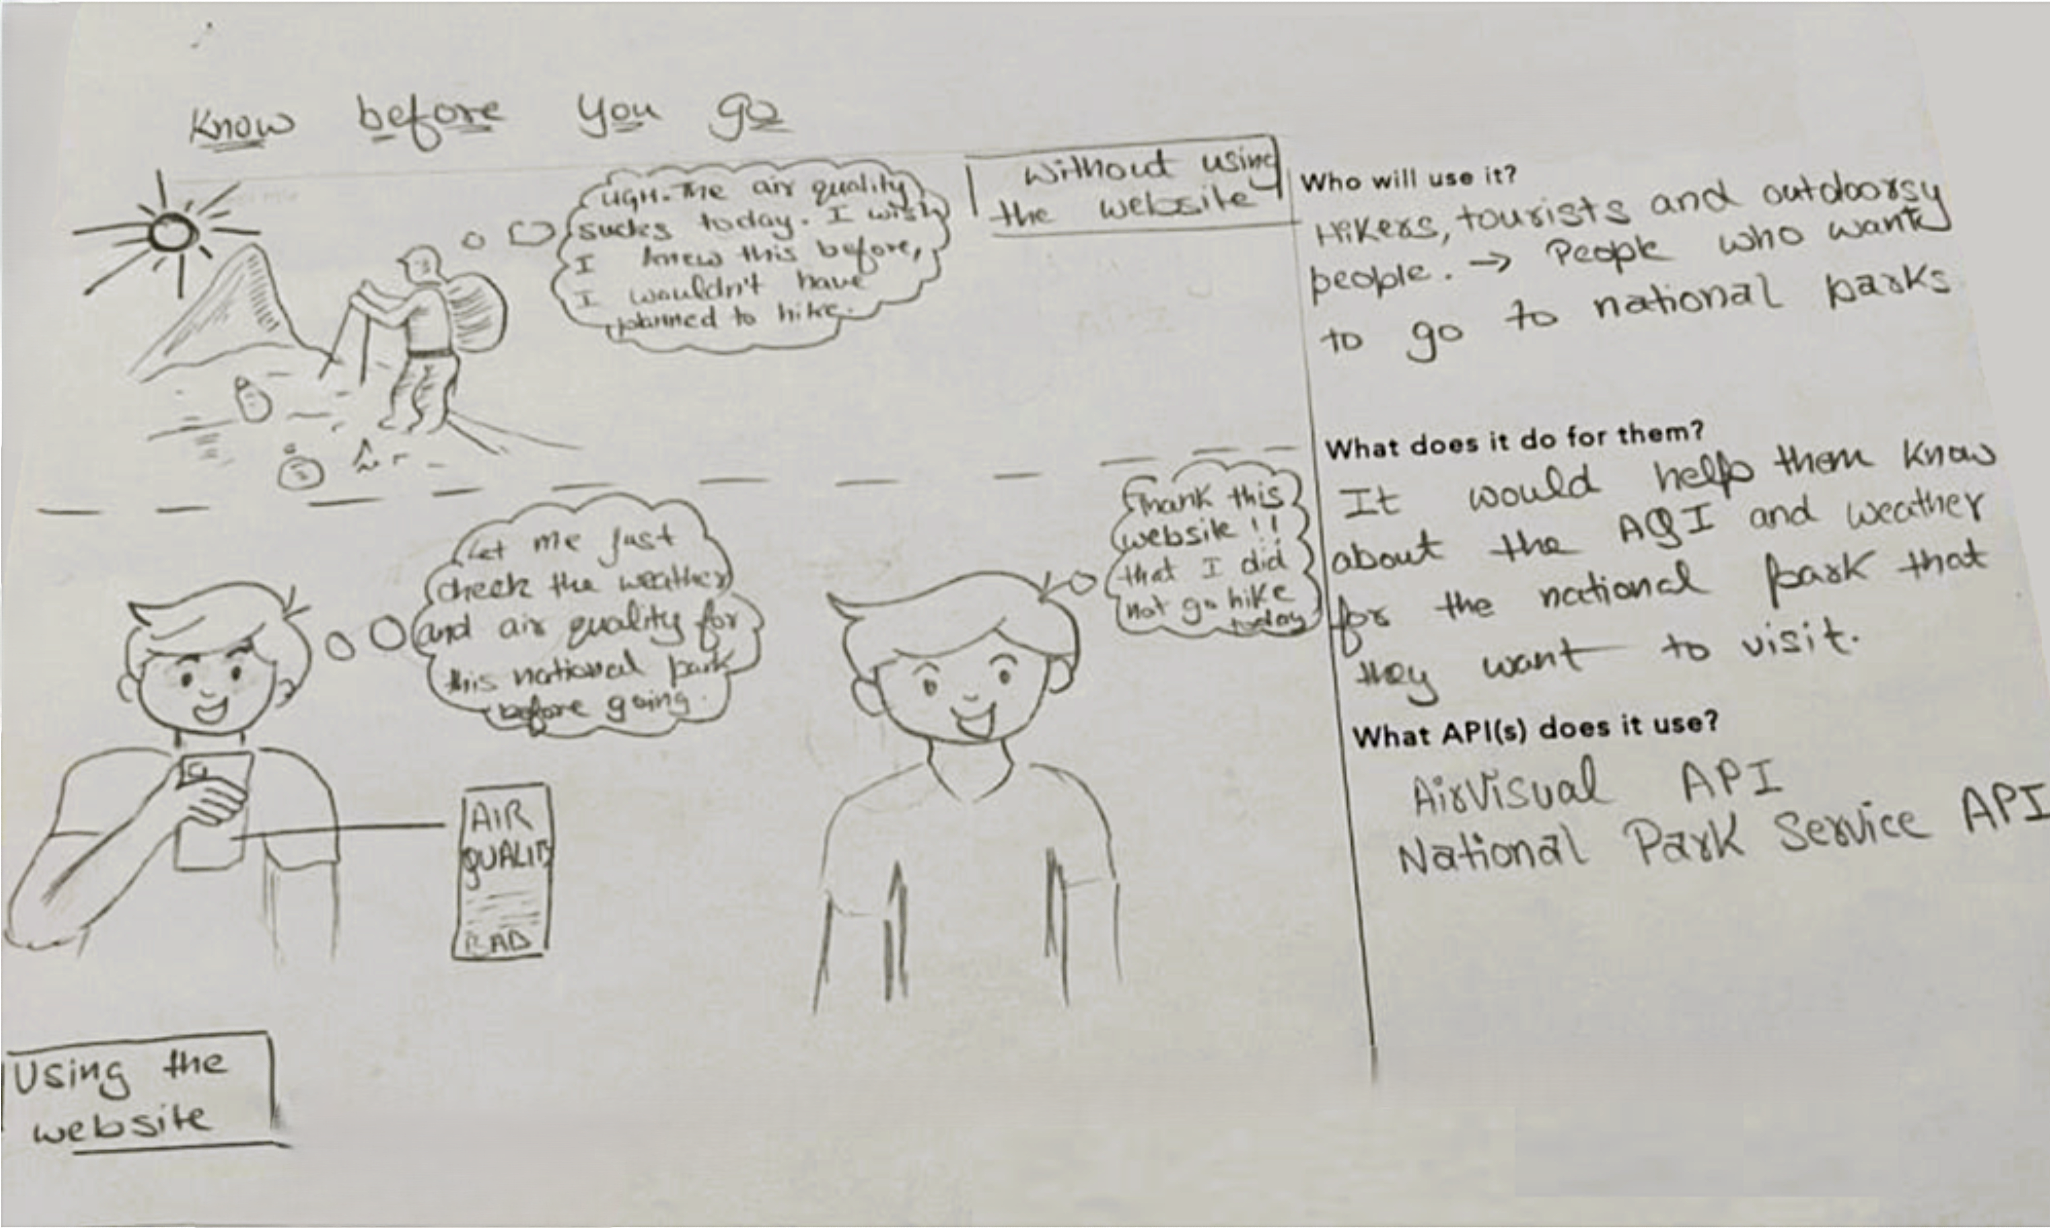 Know before you go
UGH. The air quality
sucks today. I wish
I knew this before,
I wouldn't have
planned to hike.
Without using
the website
Let me just
check the weather
and air quality for
this national park
before going.
AIR
QUALITY
BAD
Thank this
website!!
that I did
not go hike
today
Using the
website
Who will use it?
Hikers, tourists and outdoorsy
people. → People who want
to go to national parks
What does it do for them?
It would help them know
about the AQI and weather
for the national park that
they want to visit.
What API(s) does it use?
AirVisual API
National Park Service API